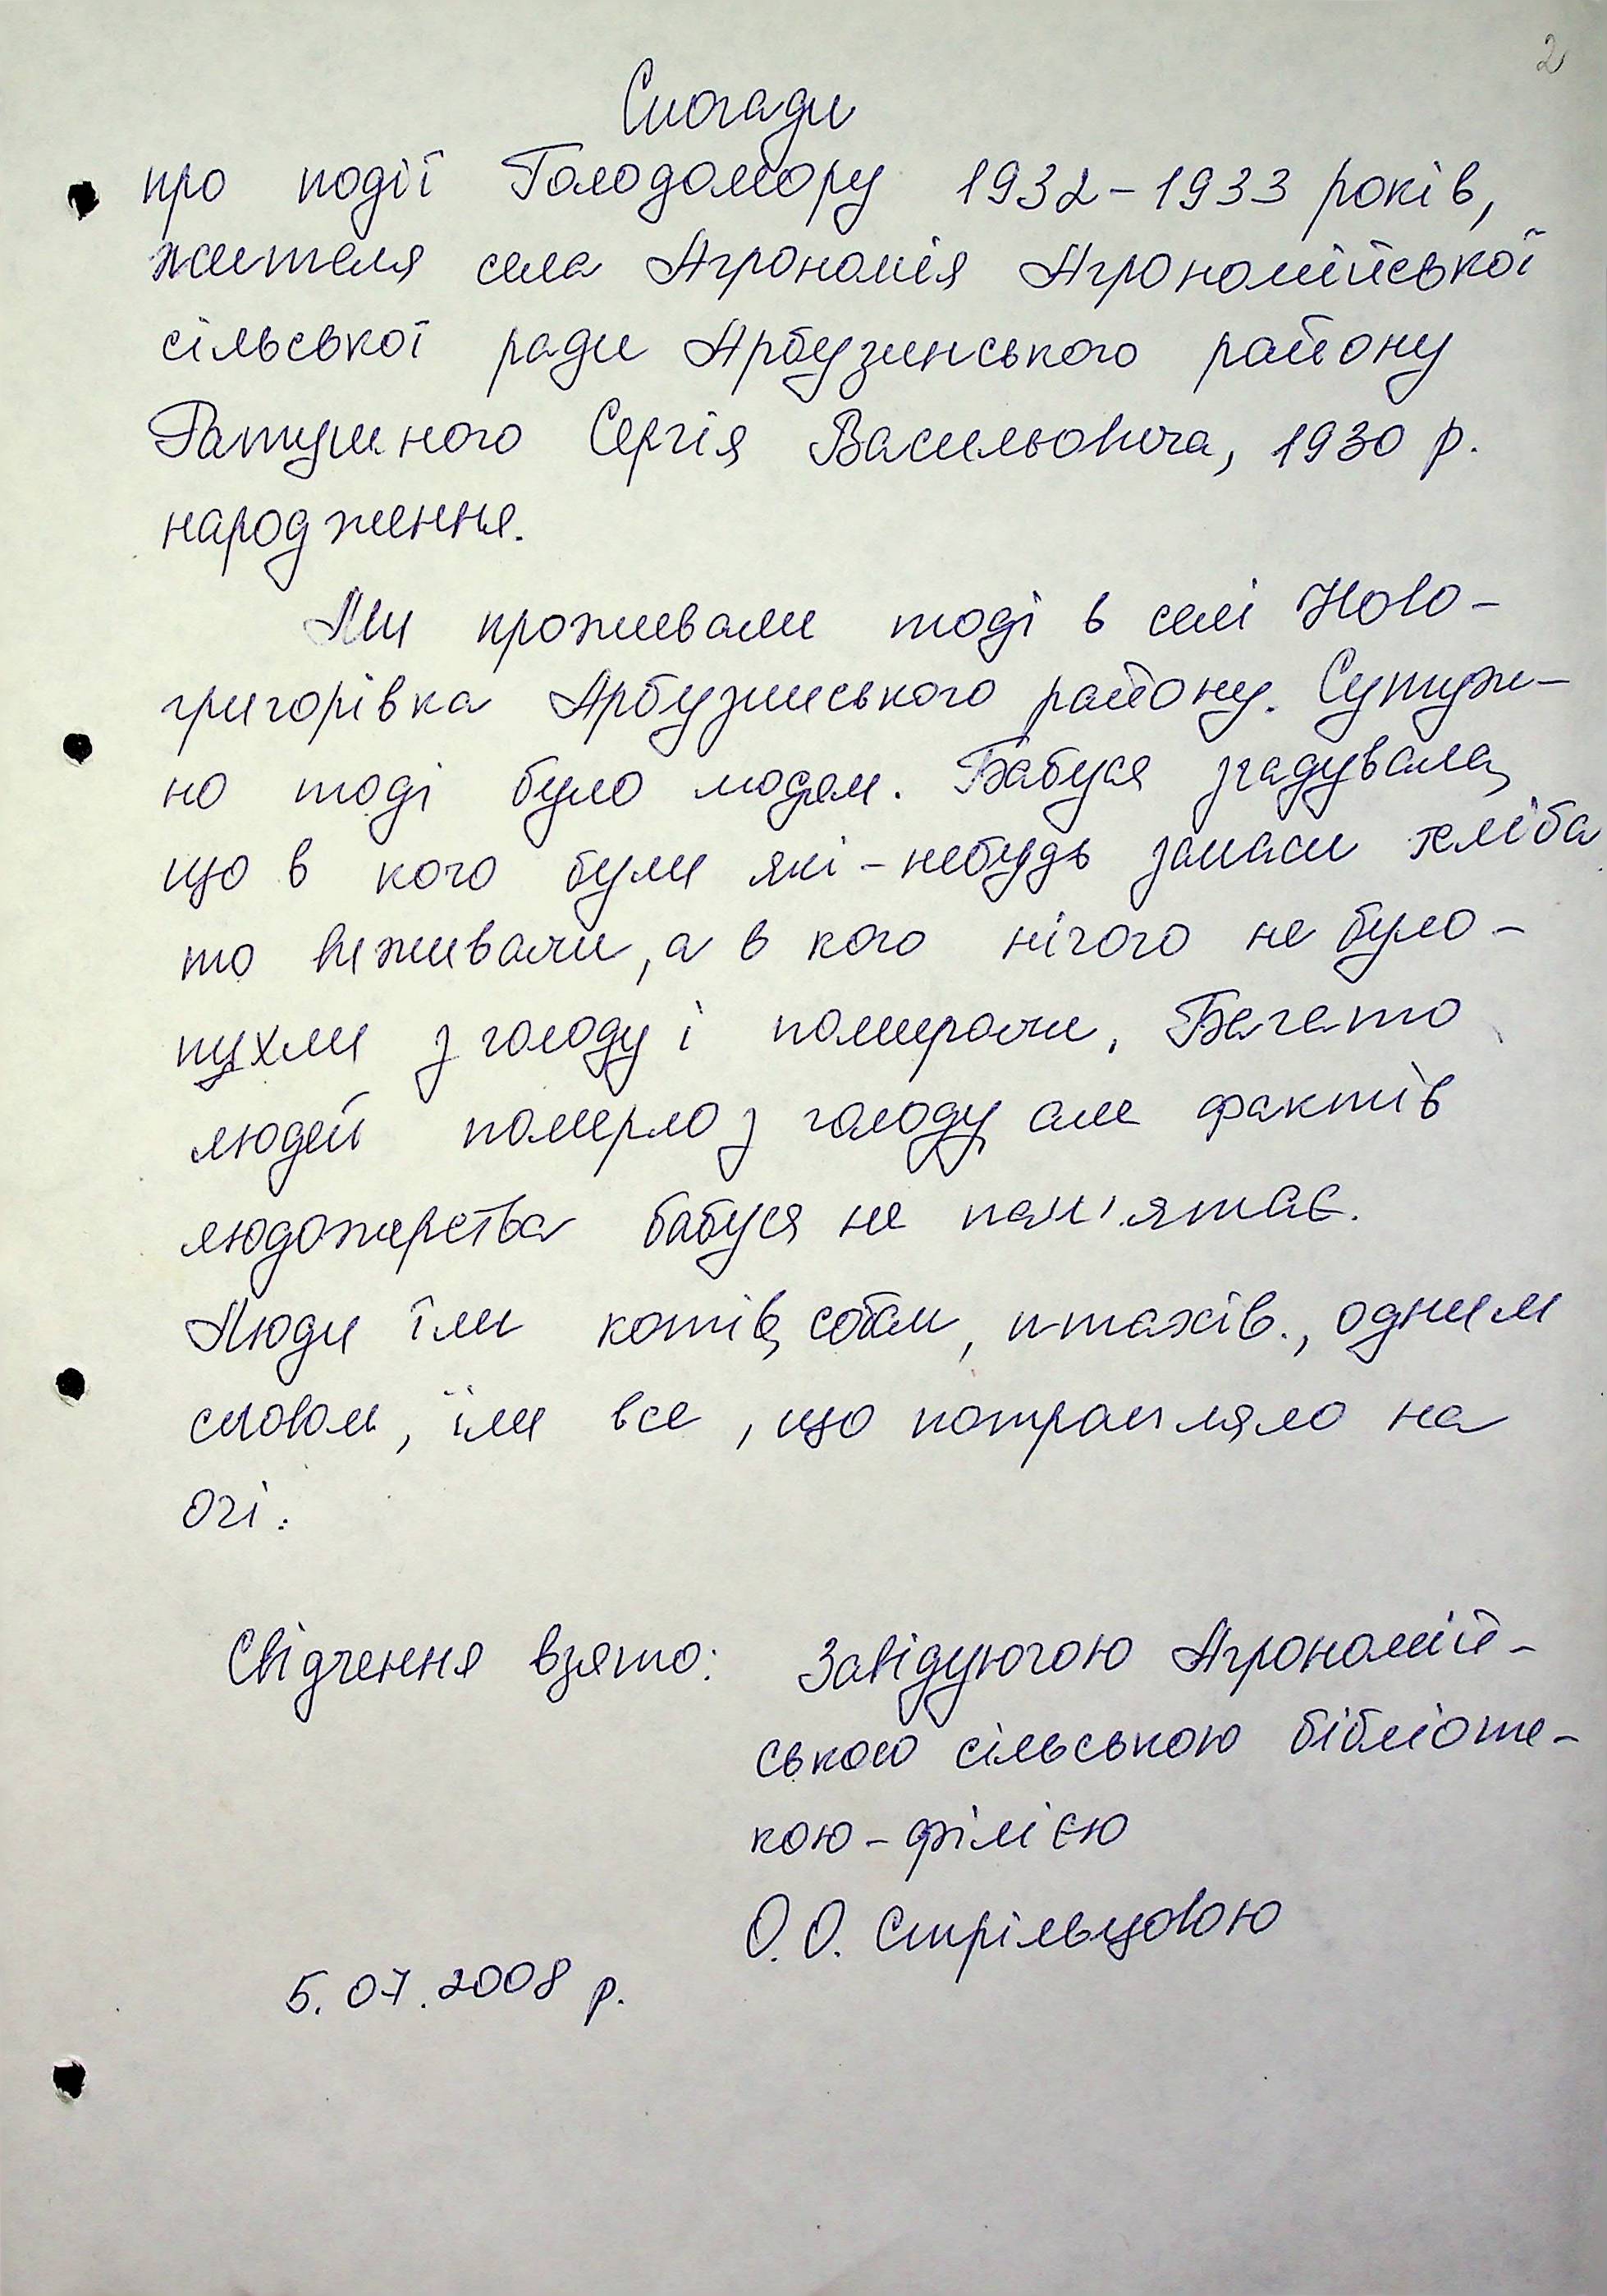 2
Спогади
про події Голодомору 1932-1933 років,
жителя села Агрономія Агрономійської
сільської ради Арбузинського району
Ратушного Сергія Васильовича, 1930 р.
народження.
Ми проживали тоді в селі Ново-
григорівка Арбузинського району. Сутуж-
но тоді було людям. Бабуся згадувала,
що в кого були які-небудь запаси хліба
то виживали, а в кого нічого не було -
пухли з голоду і помирали. Багато
людей померло з голоду, але фактів
людожерства бабуся не пам'ятає.
Люди їли котів, собак, птахів., одним
словом, їли все, що потрапляло на
очі.
Свідчення взято: Завідуючою Агрономій-
ською сільською бібліоте-
кою-філією
О.О. Стрільцовою
5.07.2008 р.